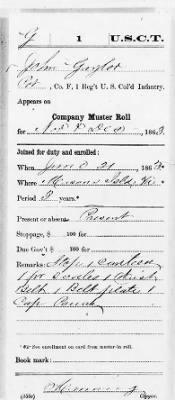 G 1 U.S.C.T.
John Taylor
Co. F, 1 Reg't U. S. Col'd Infantry.
Appears on
Company Muster Roll
for Nov & Dec, 1863.
Joined for duty and enrolled:
When June 21, 1863
Where Masons Isld,
Period 3 years.
Present or absent Present
Stoppage, $ 100 for
Due Gov't $ 100 for
Remarks: Stop 1 canteen
1 for 1 waist
Belt 1 Belt plate 1
Cap Pouch
*See enrollment on card from muster-in roll.
Book mark:
Copyist.